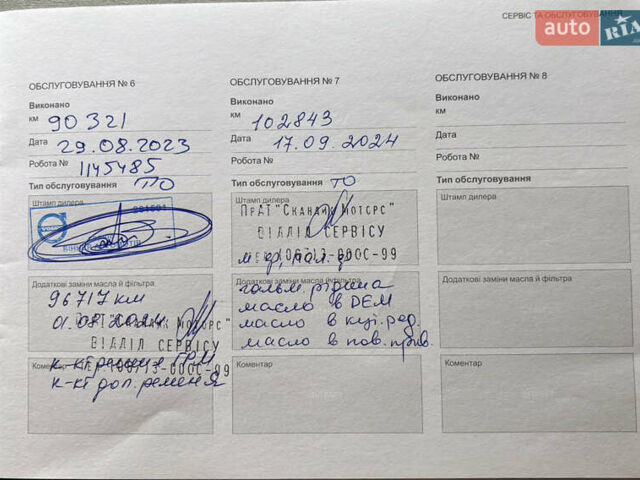 СЕРВІС ТА ОБСЛУГОВУВАННЯ
auto RIA
ОБСЛУГОВУВАННЯ № 6
Виконано
км 90321
Дата 29.08.2023
Робота № 1145485
Тип обслуговування ТО
Штамп дилера
Додаткові заміни масла й фільтра
96717 км
01.08.2024
ПрАТ "Скандік Моторс"
ВІДДІЛ СЕРВІСУ
к-кт ременя ГРМ
к-кт доп. ременя
Коментар
ОБСЛУГОВУВАННЯ № 7
Виконано
км 102843
Дата 17.09.2024
Робота №
Тип обслуговування ТО
Штамп дилера
ПрАТ "Скандік Моторс"
ВІДДІЛ СЕРВІСУ
106713-000С-99
Додаткові заміни масла й фільтра
гальм. рідина
масло в DEM
масло в кут. ред.
масло в пов. прив.
Коментар
ОБСЛУГОВУВАННЯ № 8
Виконано
км
Дата
Робота №
Тип обслуговування
Штамп дилера
Додаткові заміни масла й фільтра
Коментар